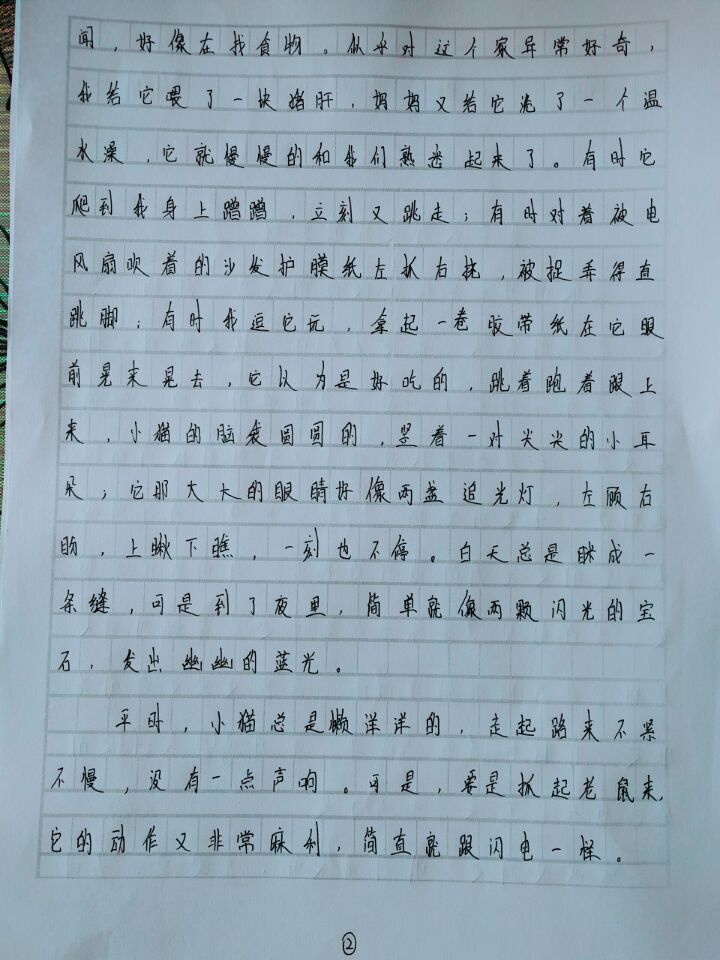 闻，好像在找食物。似乎对这个家异常好奇，
我给它喂了一块猪肝，妈妈又给它洗了一个温
水澡，它就慢慢的和我们熟悉起来了。有时它
爬到我身上蹭蹭，立刻又跳走；有时对着被电
风扇吹着的沙发护膜纸左抓右挠，被捉弄得直
跳脚；有时我逗它玩，拿起一卷胶带纸在它眼
前晃来晃去，它以为是好吃的，跳着跑着跟上
来，小猫的脑袋圆圆的，竖着一对尖尖的小耳
朵；它那大大的眼睛好像两盏追光灯，左顾右
盼，上瞅下瞧，一刻也不停。白天总是眯成一
条缝，可是到了夜里，简单就像两颗闪光的宝
石，发出幽幽的蓝光。
平时，小猫总是懒洋洋的，走起路来不紧
不慢，没有一点声响。可是，要是抓起老鼠来，
它的动作又非常麻利，简直就跟闪电一样。
②